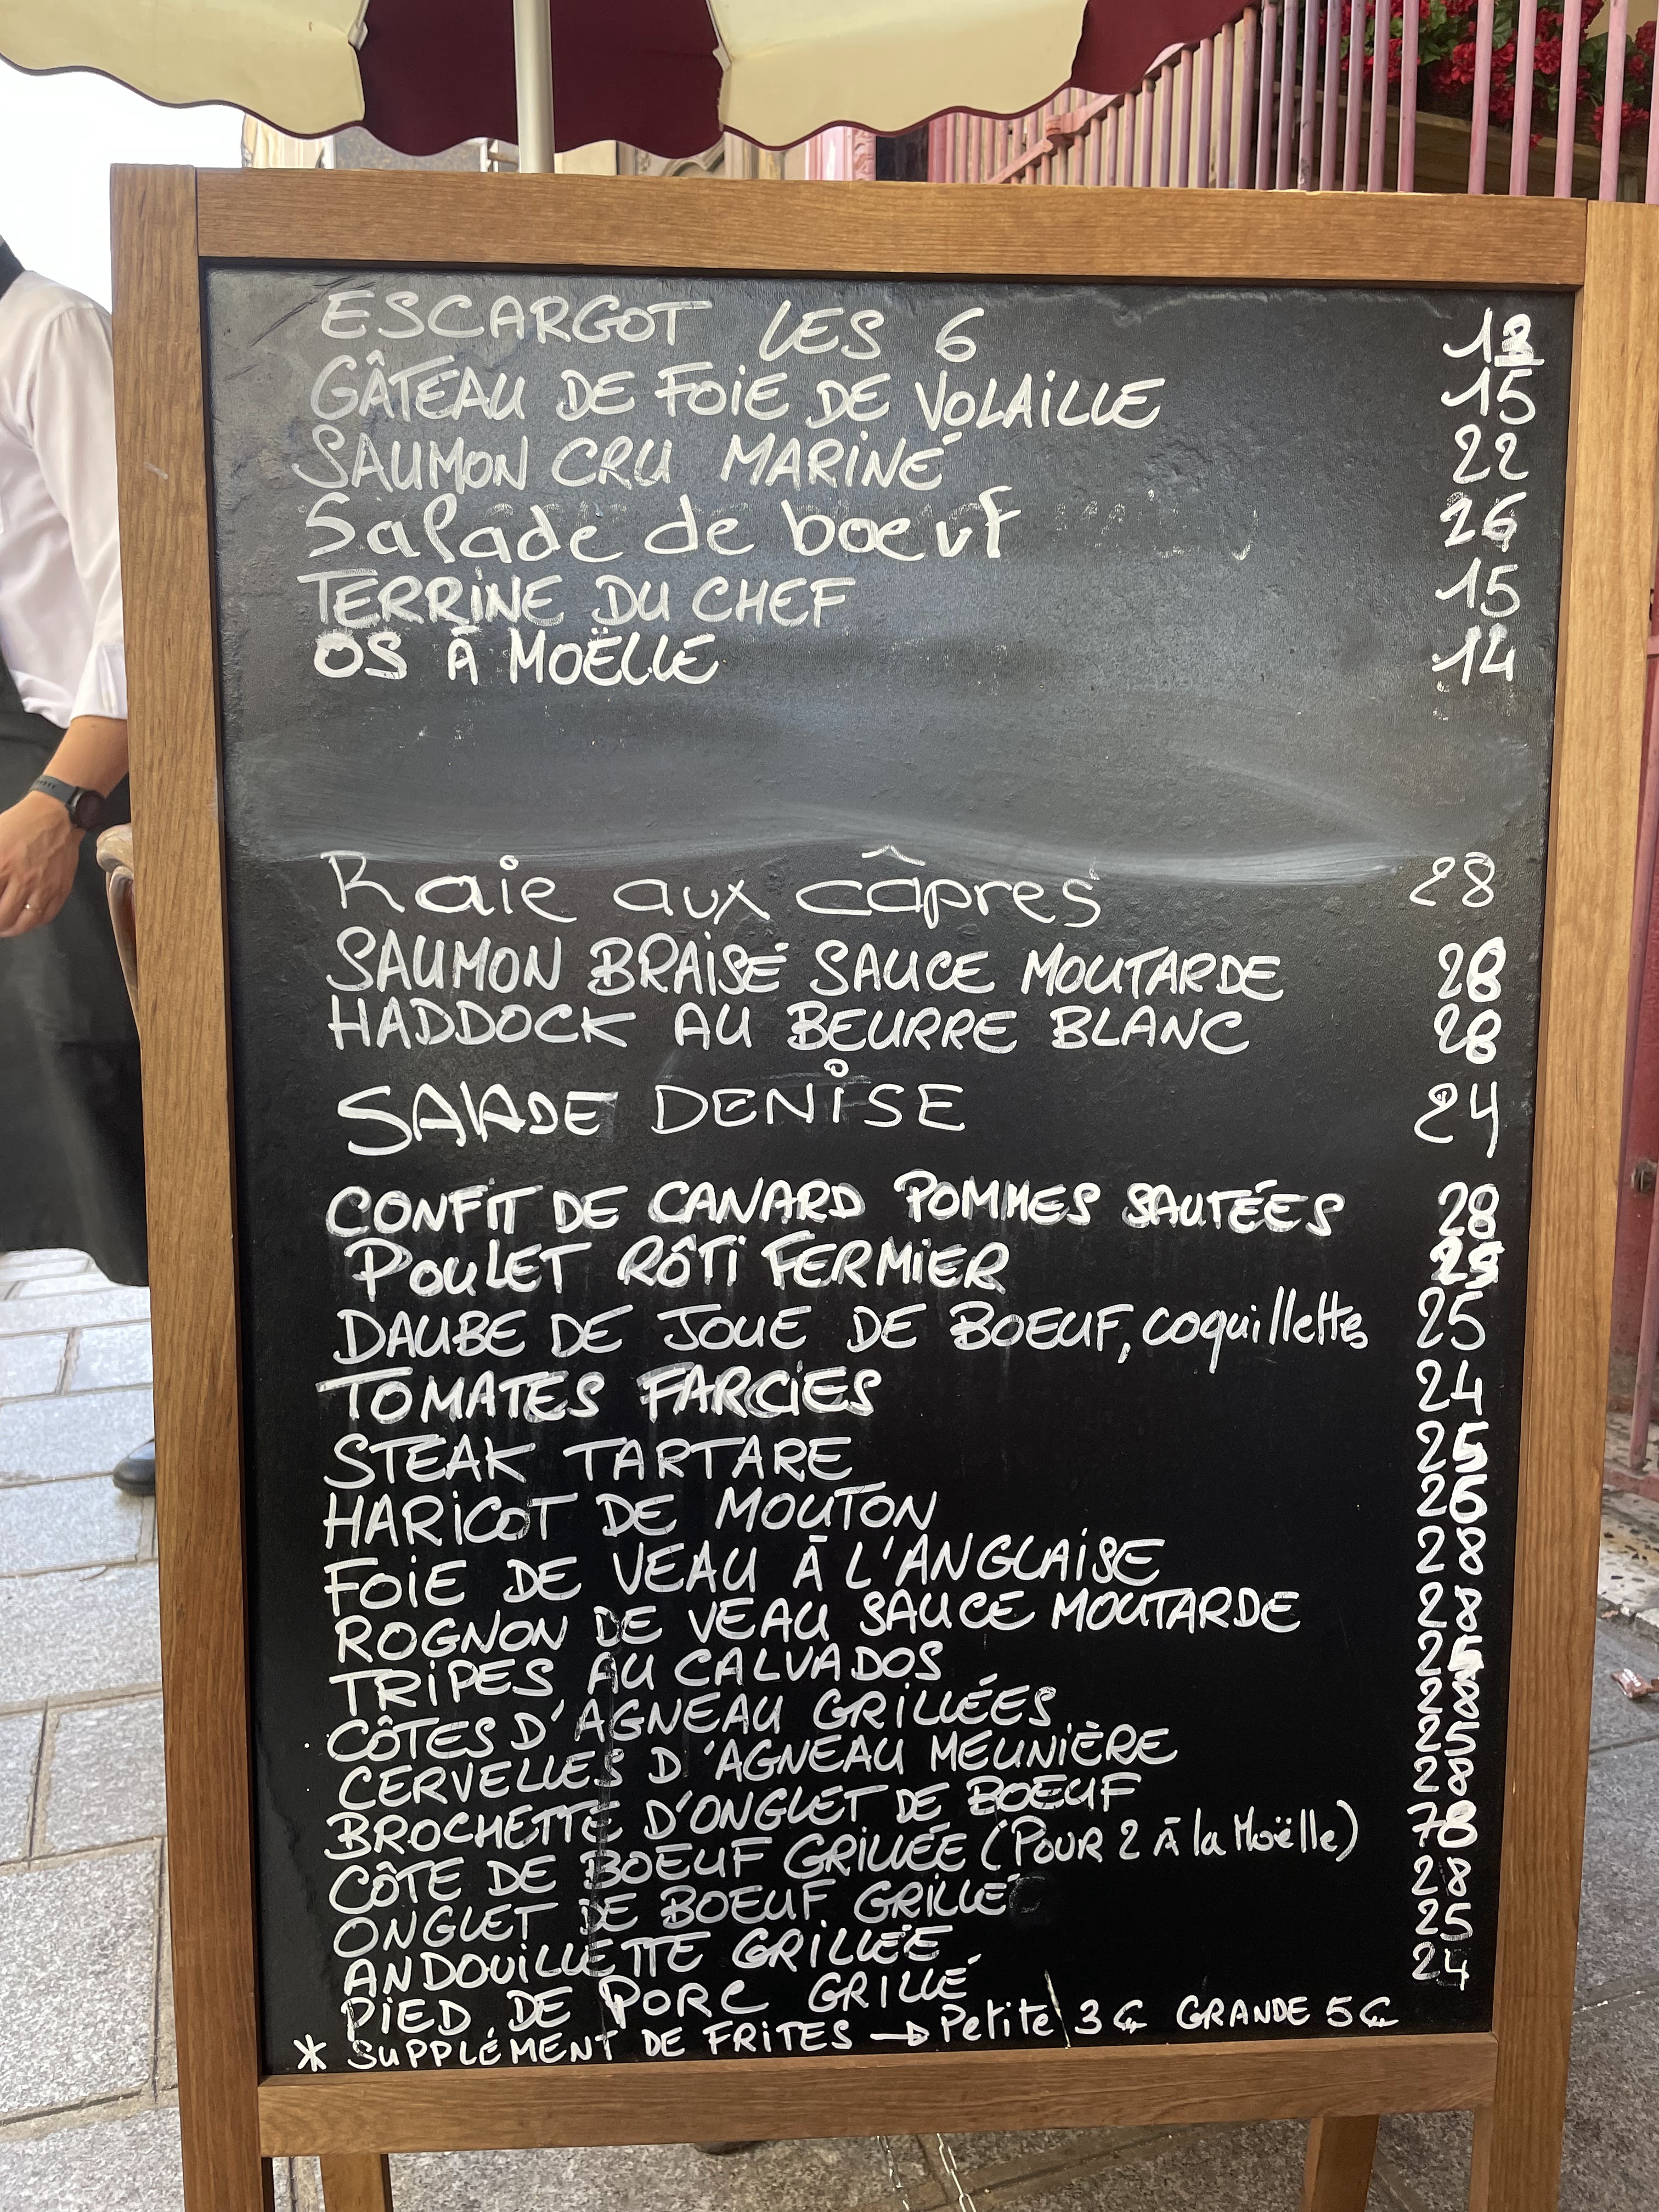 ESCARGOT LES 6
GÂTEAU DE FOIE DE VOLAILLE 15
SAUMON CRU MARINÉ 22
Salade de boeuf 26
TERRINE DU CHEF 15
OS À MOËLLE 14
Raie aux câpres 28
SAUMON BRAISÉ SAUCE MOUTARDE 28
HADDOCK AU BEURRE BLANC 28
SALADE DENISE 24
CONFIT DE CANARD POMMES SAUTÉES 28
POULET RÔTI FERMIER 25
DAUBE DE JOUE DE BOEUF, coquillettes 25
TOMATES FARCIES 24
STEAK TARTARE 25
HARICOT DE MOUTON 26
FOIE DE VEAU À L'ANGLAISE 28
ROGNON DE VEAU SAUCE MOUTARDE 28
TRIPES AU CALVADOS 25
CÔTES D'AGNEAU GRILLÉES 28
CERVELLES D'AGNEAU MEUNIÈRE 25
BROCHETTE D'ONGLET DE BOEUF 28
CÔTE DE BOEUF GRILLÉE (POUR 2 À la Moëlle) 78
ONGLET DE BOEUF GRILLÉ 28
ANDOUILLETTE GRILLÉE 25
PIED DE PORC GRILLÉ 24
* SUPPLÉMENT DE FRITES → Petite 3€ GRANDE 5€